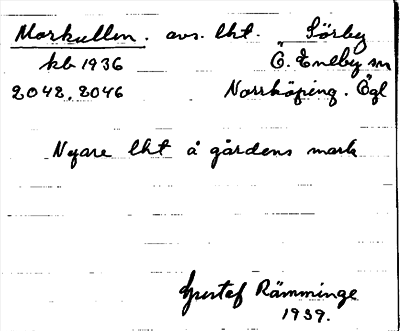 Markullen. avs. lht. Sörby
kb 1936 Ö. Eneby sn
2048, 2046 Norrköping. Ögl
Nyare lht å gårdens mark
Gustaf Rämminge
1939.